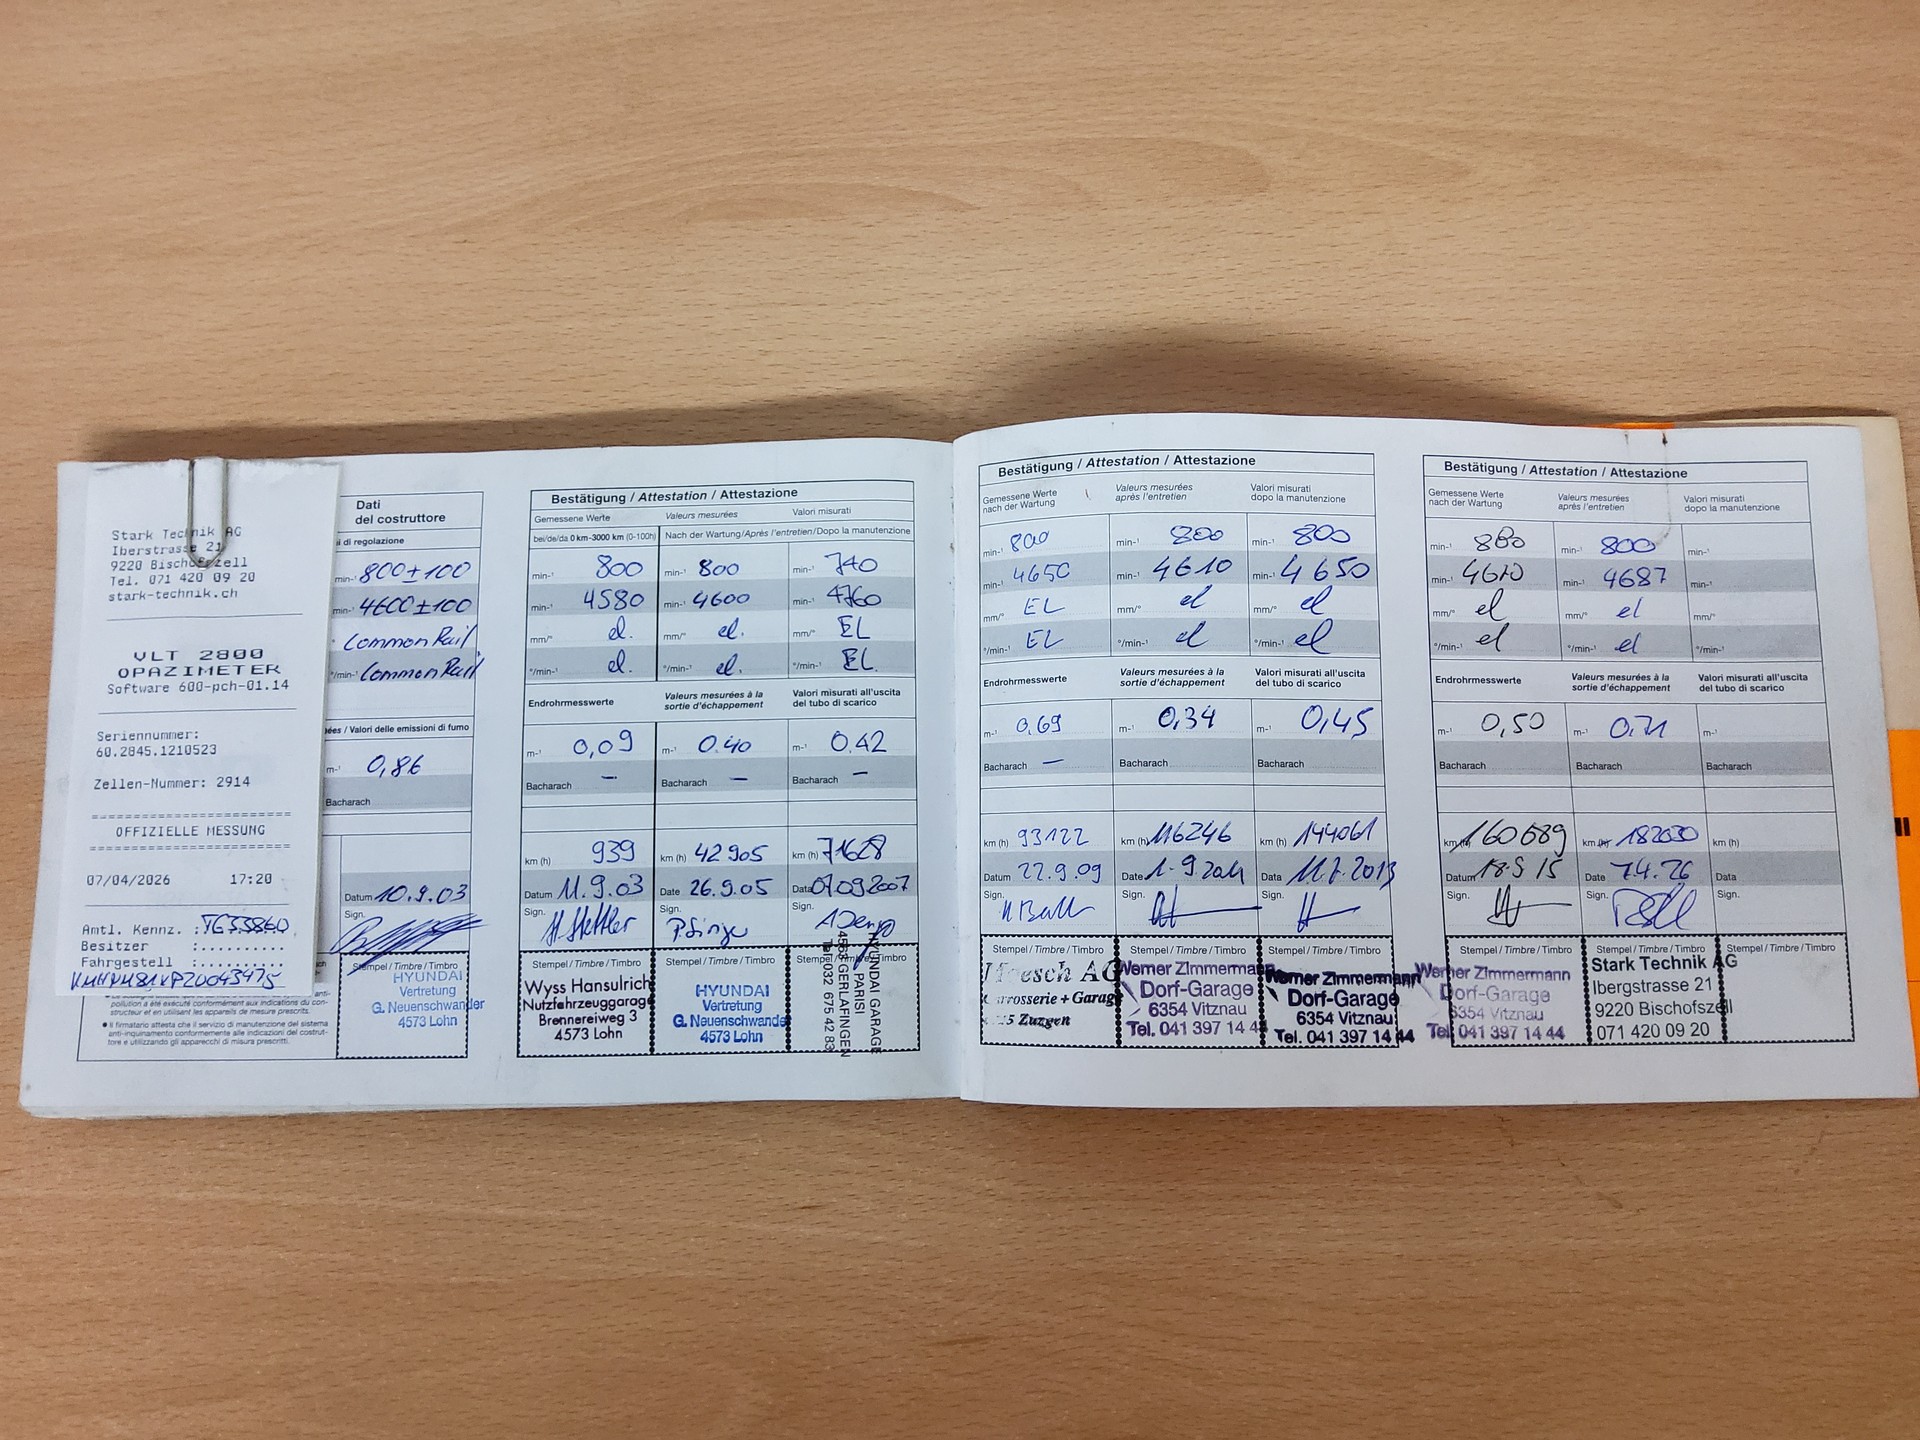 Stark Technik AG
Iberstrasse 21
9220 Bischofszell
Tel. 071 420 09 20
stark-technik.ch
VLT 2800
OPAZIMETER
Software 600-pch-01.14
Seriennummer:
60.2845.1210523
Zellen-Nummer: 2914
OFFIZIELLE MESSUNG
07/04/2026 17:20
Amtl. Kennz. :
Besitzer :..........
Fahrgestell :..........
Dati
del costruttore
i di regolazione
min-¹ 800±100
min-¹ 4600±100
Common Rail
°/min-¹ Common Rail
ées / Valori delle emissioni di fumo
m-¹ 0,86
Bacharach
Datum 10.9.03
Sign.
Stempel / Timbre / Timbro
HYUNDAI
Vertretung
G. Neuenschwander
4573 Lohn
pollution a été exécuté conformément aux indications du con-
structeur et en utilisant les appareils de mesure prescrits.
● Il firmatario attesta che il servizio di manutenzione del sistema
anti-inquinamento conformemente alle indicazioni del costrut-
tore e utilizzando gli apparecchi di misura prescritti.
Bestätigung / Attestation / Attestazione
Gemessene Werte Valeurs mesurées Valori misurati
bei/de/da 0 km-3000 km (0-100h) Nach der Wartung/Après l'entretien/Dopo la manutenzione
min-¹ 800 min-¹ 800 min-¹ 740
min-¹ 4580 min-¹ 4600 min-¹ 4760
mm/° el. mm/° el. mm/° EL
°/min-¹ el. °/min-¹ el. °/min-¹ EL.
Endrohrmesswerte Valeurs mesurées à la sortie d'échappement Valori misurati all'uscita del tubo di scarico
m-¹ 0,09 m-¹ 0.40 m-¹ 0.42
Bacharach – Bacharach – Bacharach –
km (h) 939 km (h) 42905 km (h) 71628
Datum 11.9.03 Date 26.9.05 Data 07.09.2007
Sign. Sign. Sign.
Stempel / Timbre / Timbro Stempel / Timbre / Timbro Stempel / Timbre / Timbro
Wyss Hansulrich
Nutzfahrzeuggarage
Brennereiweg 3
4573 Lohn
HYUNDAI
Vertretung
G. Neuenschwander
4573 Lohn
HYUNDAI GARAGE
PARISI
4563 GERLAFINGEN
Tel 032 675 42 83
Bestätigung / Attestation / Attestazione
Gemessene Werte nach der Wartung Valeurs mesurées après l'entretien Valori misurati dopo la manutenzione
min-¹ 800 min-¹ 800 min-¹ 800
min-¹ 4650 min-¹ 4610 min-¹ 4650
mm/° EL mm/° el mm/° el
°/min-¹ EL °/min-¹ el °/min-¹ el
Endrohrmesswerte Valeurs mesurées à la sortie d'échappement Valori misurati all'uscita del tubo di scarico
m-¹ 0.69 m-¹ 0,34 m-¹ 0,45
Bacharach – Bacharach Bacharach
km (h) 93122 km (h) 116246 km (h) 144061
Datum 22.9.09 Date 1.9.2011 Data 11.7.2013
Sign. Sign. Sign.
Stempel / Timbre / Timbro Stempel / Timbre / Timbro Stempel / Timbre / Timbro
oesch AG
rosserie + Garage
Zuzgen
Werner Zimmermann
Dorf-Garage
6354 Vitznau
Tel. 041 397 14 4
Werner Zimmermann
Dorf-Garage
6354 Vitznau
Tel. 041 397 14 44
Bestätigung / Attestation / Attestazione
Gemessene Werte nach der Wartung Valeurs mesurées après l'entretien Valori misurati dopo la manutenzione
min-¹ 800 min-¹ 800 min-¹
min-¹ min-¹ 4687 min-¹
mm/° el mm/° el mm/°
°/min-¹ el °/min-¹ el °/min-¹
Endrohrmesswerte Valeurs mesurées à la sortie d'échappement Valori misurati all'uscita del tubo di scarico
m-¹ 0,50 m-¹ 0.71 m-¹
Bacharach Bacharach Bacharach
km (h) 160689 km (h) 182030 km (h)
Datum 18.9.15 Date 7.4.26 Data
Sign. Sign. Sign.
Stempel / Timbre / Timbro Stempel / Timbre / Timbro Stempel / Timbre / Timbro
Werner Zimmermann
Dorf-Garage
6354 Vitznau
Tel. 041 397 14 44
Stark Technik AG
Ibergstrasse 21
9220 Bischofszell
071 420 09 20